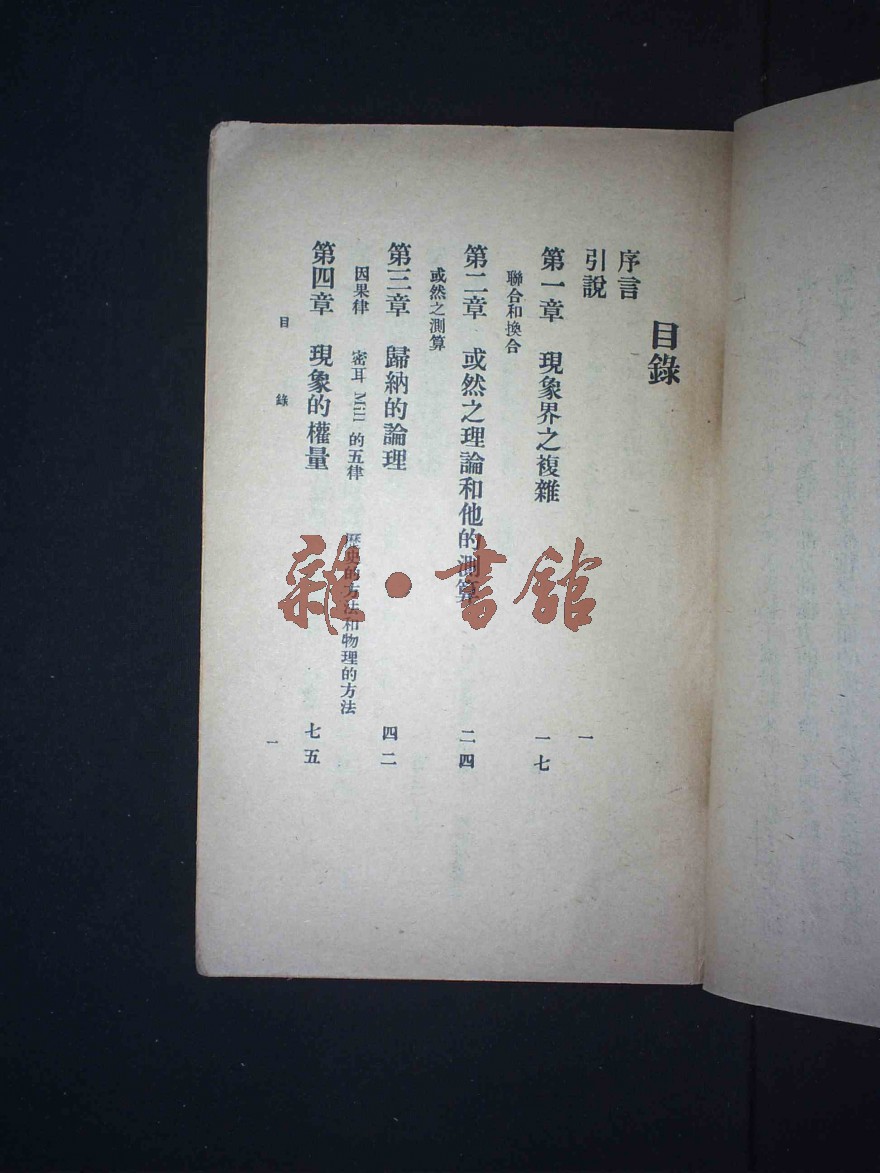 目錄
序言
引說 一
第一章 現象界之複雜 一七
聯合和換合
第二章 或然之理論和他的測算 二四
或然之測算
第三章 歸納的論理 四二
因果律 密耳 Mill 的五律 歷史的方法和物理的方法
第四章 現象的權量 七五
目錄 一
雜·書館